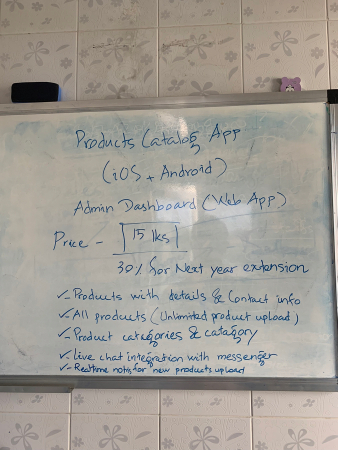 Products Catalog App
(iOS + Android)
Admin Dashboard (Web App)
Price - 15 lks
30% for Next year extension
✓- Products with details & Contact info
✓- All products (Unlimited product upload)
✓- Product categories & catagory
✓- Live chat integration with messenger
✓- Realtime notis for new products upload